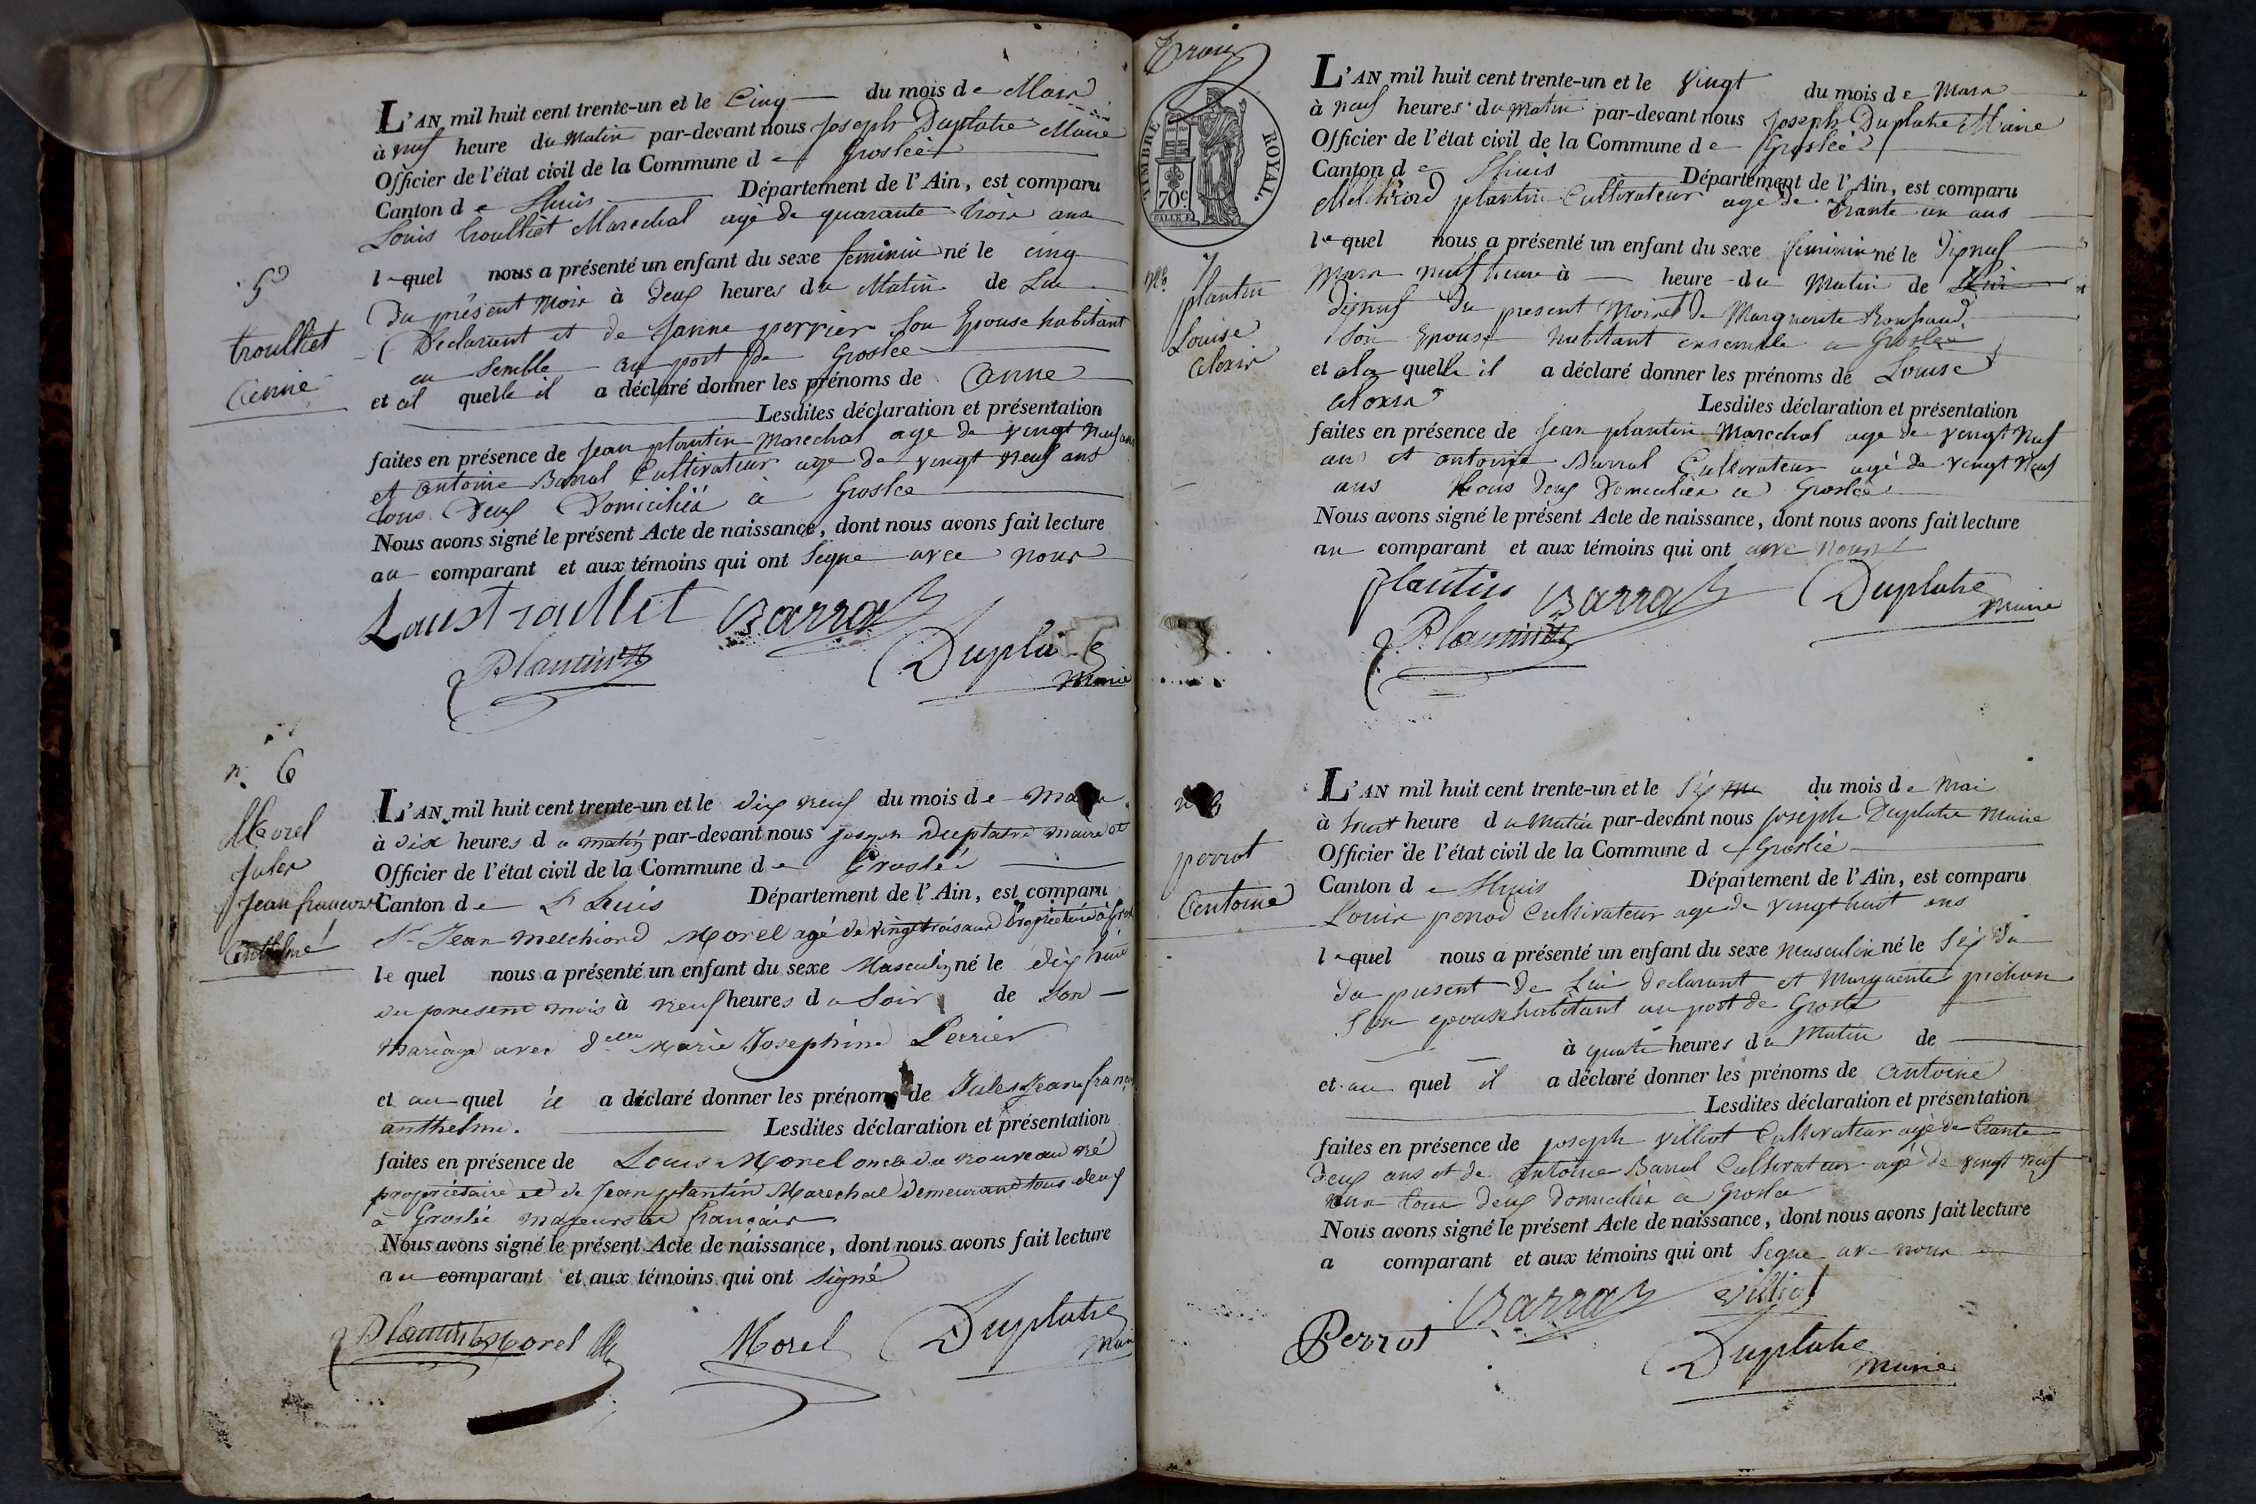 5
troulliet
Anne
L'AN mil huit cent trente-un et le Cinq du mois de Mars
à neuf heure du Matin par-devant nous Joseph Duplatre Maire
Officier de l'état civil de la Commune de Groslée
Canton de Lhuis Département de l'Ain, est comparu
Louis troulliet Marechal agé de quarante trois ans
lequel nous a présenté un enfant du sexe feminin né le cinq
du présent Mois à deux heures du Matin de Lui
Declarant et de Janne perrier Son Epouse habitant
en semble au port de Groslée
et al quelle il a déclaré donner les prénoms de Anne
Lesdites déclaration et présentation
faites en présence de Jean plantin Marechal age de vingt Neuf ans
et antoine Barral Cultivateur age de vingt neuf ans
tous Deux Domiciliés à Groslee
Nous avons signé le présent Acte de naissance, dont nous avons fait lecture
au comparant et aux témoins qui ont Signe avec nous
Louis troulliet Barral
Plantin
Duplatre
Maire
n. 6
Morel
Jules
Jean francois
Anthelme
L'AN mil huit cent trente-un et le dix neuf du mois de Mars
à dix heures du matin par-devant nous joseph Duplatre maire et
Officier de l'état civil de la Commune de Groslée
Canton de Lhuis Département de l'Ain, est comparu
Sr Jean Melchiord Morel agé de vingt trois ans propriétaire à
lequel nous a présenté un enfant du sexe Masculin né le dix huit
du present mois à neuf heures du Soir de Son
mariage avec delle Marie Josephine Perrier
et au quel il a déclaré donner les prénoms de Jules Jean françois
anthelme. Lesdites déclaration et présentation
faites en présence de Louis Morel oncle du nouveau né
propriétaire et de Jean plantin Marechal demeurant tous deux
à Groslée majeurs et français
Nous avons signé le présent Acte de naissance, dont nous avons fait lecture
au comparant et aux témoins qui ont signé
Plantin Morel Morel Duplatre
Maire
Trois
TIMBRE ROYAL.
70c
n°
7
plantin
Louise
Alexis
L'AN mil huit cent trente-un et le Vingt du mois de Mars
à neuf heures du matin par-devant nous Joseph Duplatre Maire
Officier de l'état civil de la Commune de Groslée
Canton de Lhuis Département de l'Ain, est comparu
Melchiord plantin Cultivateur age de trante un ans
lequel nous a présenté un enfant du sexe feminin né le Dixneuf
Mars neuf heure à heure du Matin de Lui
dixneuf du present Mois et de Marguerite
son Epouse habitant ensemble a Groslee
et ala quelle il a déclaré donner les prénoms de Louise
alexis Lesdites déclaration et présentation
faites en présence de Jean plantin Marechal age de vengt Neuf
ans et antoine Barral Cultivateur agé de vingt Neuf
ans tous deux Domiciliés a Groslée
Nous avons signé le présent Acte de naissance, dont nous avons fait lecture
au comparant et aux témoins qui ont avec Nous
plantin Barral Duplatre
Maire
Plantin
n° 8
perrot
Antoine
L'AN mil huit cent trente-un et le Six du mois de Mai
à huit heure du Matin par-devant nous Joseph Duplatre Maire
Officier de l'état civil de la Commune de Groslée
Canton de Lhuis Département de l'Ain, est comparu
Louis perrod Cultivateur age de vingt huit ans
lequel nous a présenté un enfant du sexe Masculin né le Six du
du present de Lui declarant et Marguerite pichon
Son epouse habitant au port de Groslé
à quatre heures du Matin de
et au quel il a déclaré donner les prénoms de antoine
Lesdites déclaration et présentation
faites en présence de joseph Villiot Cultivateur agé de trante
deux ans et de antoine Barral Cultivateur agé de vingt neuf
tous deux domiciliés à Groslee
Nous avons signé le présent Acte de naissance, dont nous avons fait lecture
a comparant et aux témoins qui ont Signe avec nous
Barral Villiot
Perrot
Duplatre
Maire